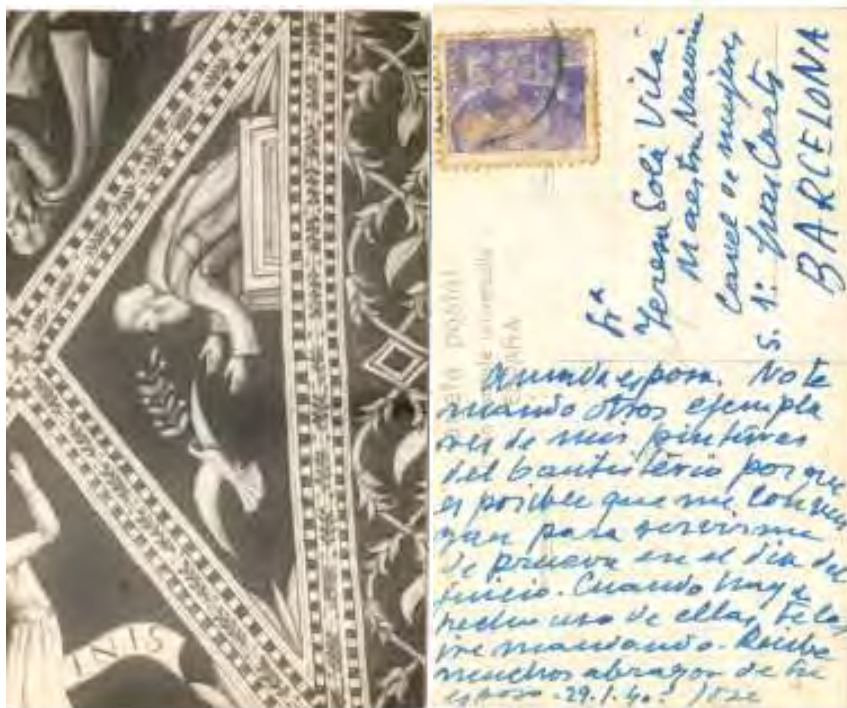 INIS
Sra
Teresa Solá Vilá
Maestra Nacional
Carcel de mujeres
S. 1: Las Corts
BARCELONA
TARJETA POSTAL
ESPAÑA
Querida esposa. No te
mando otros ejempla
res de mis pinturas
del bautisterio porque
es posible que me conven
gan para servirme
de prueva en el dia del
juicio. Cuando haya
hecho uso de ellas te las
ire mandando. Recibe
muchos abrazos de tu
esposo. 29.1.40. José